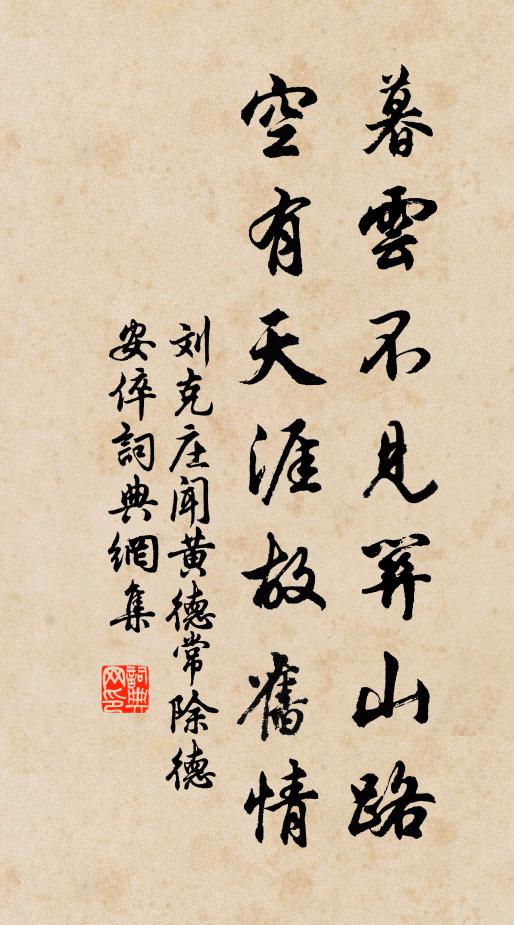 暮雲不見關山路
空有天涯故舊情
刘克庄闻黄德常除德
安倅詞典網集
詞典
网印